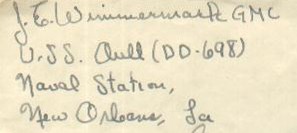 J. E. Wimmermark GMC
U.S.S. Ault (DD-698)
Naval Station,
New Orleans, La